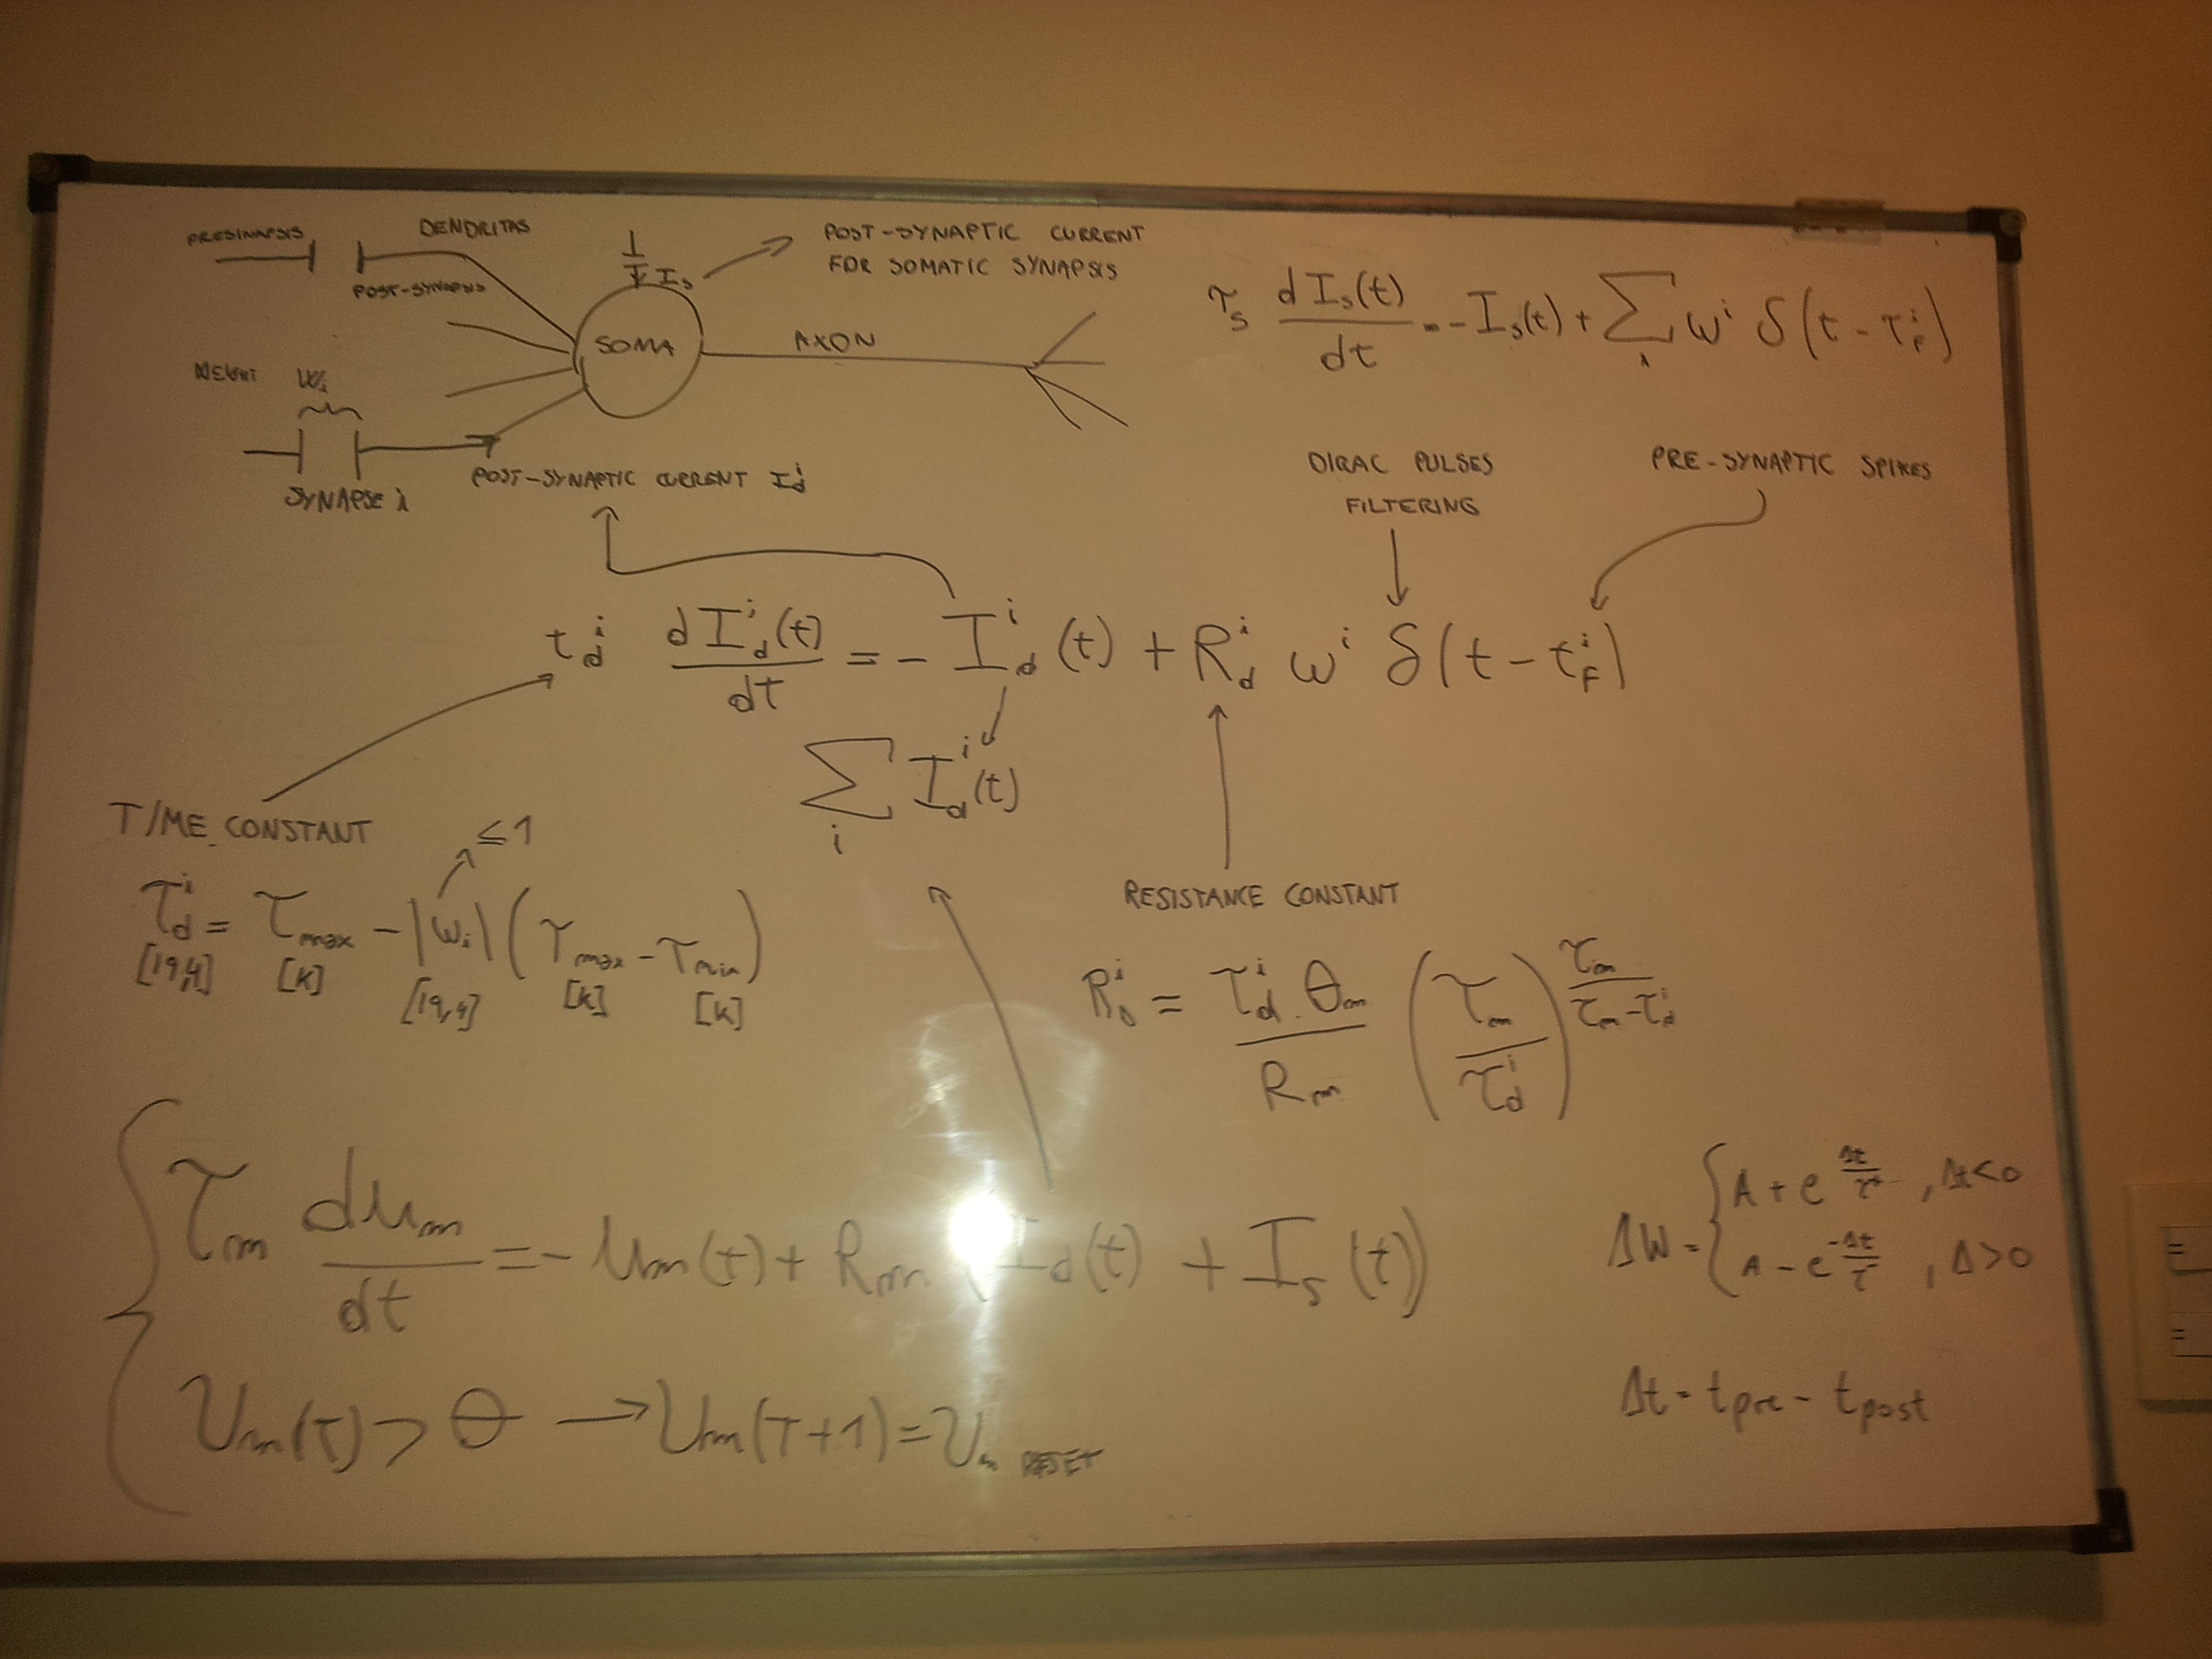 PRESINAPSIS
DENDRITAS
POST-SYNAPSIS
I_s
POST-SYNAPTIC CURRENT
FOR SOMATIC SYNAPSIS
SOMA
AXON
W_i
SYNAPSE i
POST-SYNAPTIC CURRENT I_d^i
τ_s dI_s(t)/dt = -I_s(t) + Σ_i ω^i δ(t - τ_F^i)
DIRAC PULSES
FILTERING
PRE-SYNAPTIC SPIKES
t_d^i dI_d^i(t)/dt = - I_d^i(t) + R_d^i ω^i δ(t - t_F^i)
Σ_i I_d^i(t)
TIME CONSTANT
≤1
τ_d^i = τ_max - |W_i| (τ_max - τ_min)
[19,4] [K] [19,4] [K] [K]
RESISTANCE CONSTANT
R_D^i = τ_d^i . θ_m / R_m (τ_m / τ_d^i)^(τ_m / (τ_m - τ_d^i))
τ_m du_m/dt = - u_m(t) + R_m (I_d(t) + I_s(t))
U_m(t) > θ → U_m(T+1) = U_m RESET
ΔW = { A + e^(Δt/τ+) , Δt<0
A - e^(-Δt/τ) , Δ>0
Δt = t_pre - t_post